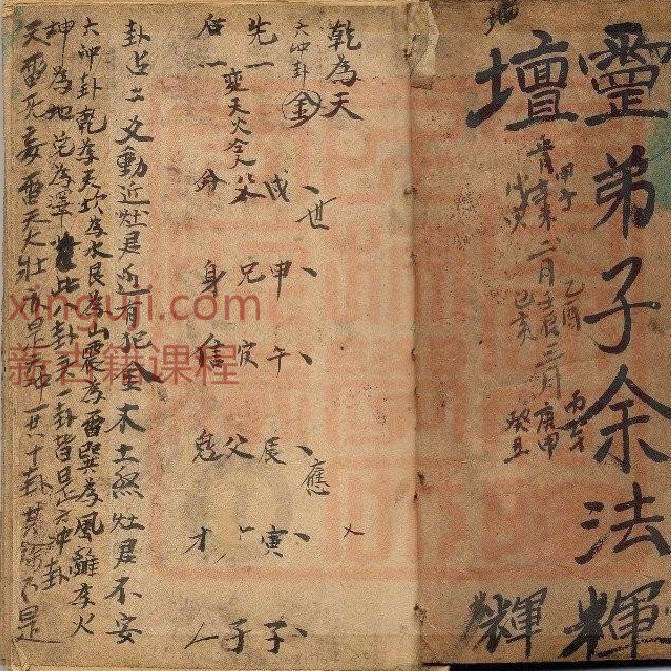 靈弟子余法輝
壇
輝
甲子
二月
乙酉
壬辰
三月
己亥
庚甲
癸丑
乾為天
六冲卦
金
世
應
戌申午辰寅子
兄父子
先一
变天火
后一
身信鬼才
卦占土爻動近灶君近有犯金木土煞灶君不安
六冲卦乾為天坎為水艮為山震為雷巽為風離為火
坤為地兌為澤此八卦六卦皆是六冲卦
天雷无妄雷天大壯亦是六冲一共十卦其餘不是
xinguji.com
新古籍课程